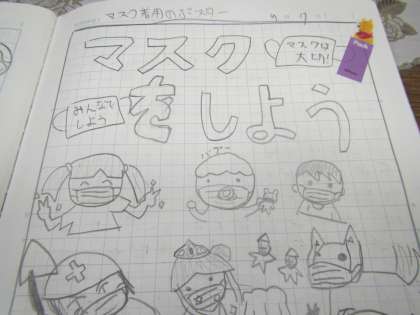 マスク着用のポスター
マスク
マスクは
大切!
みんなで
しよう
をしよう
バブー
Pooh